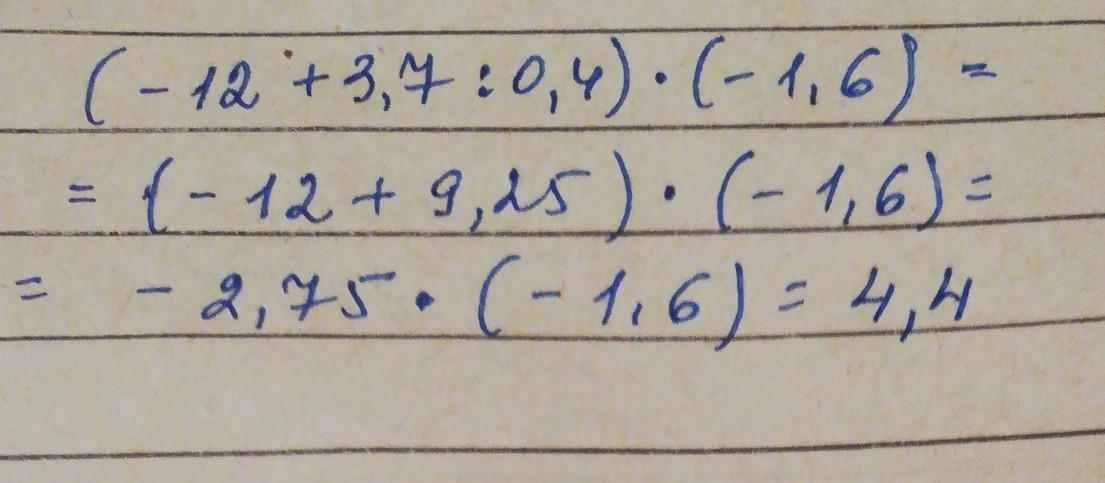 (-12 + 3,7 : 0,4) · (-1,6) =
= (-12 + 9,25) · (-1,6) =
= -2,75 · (-1,6) = 4,4